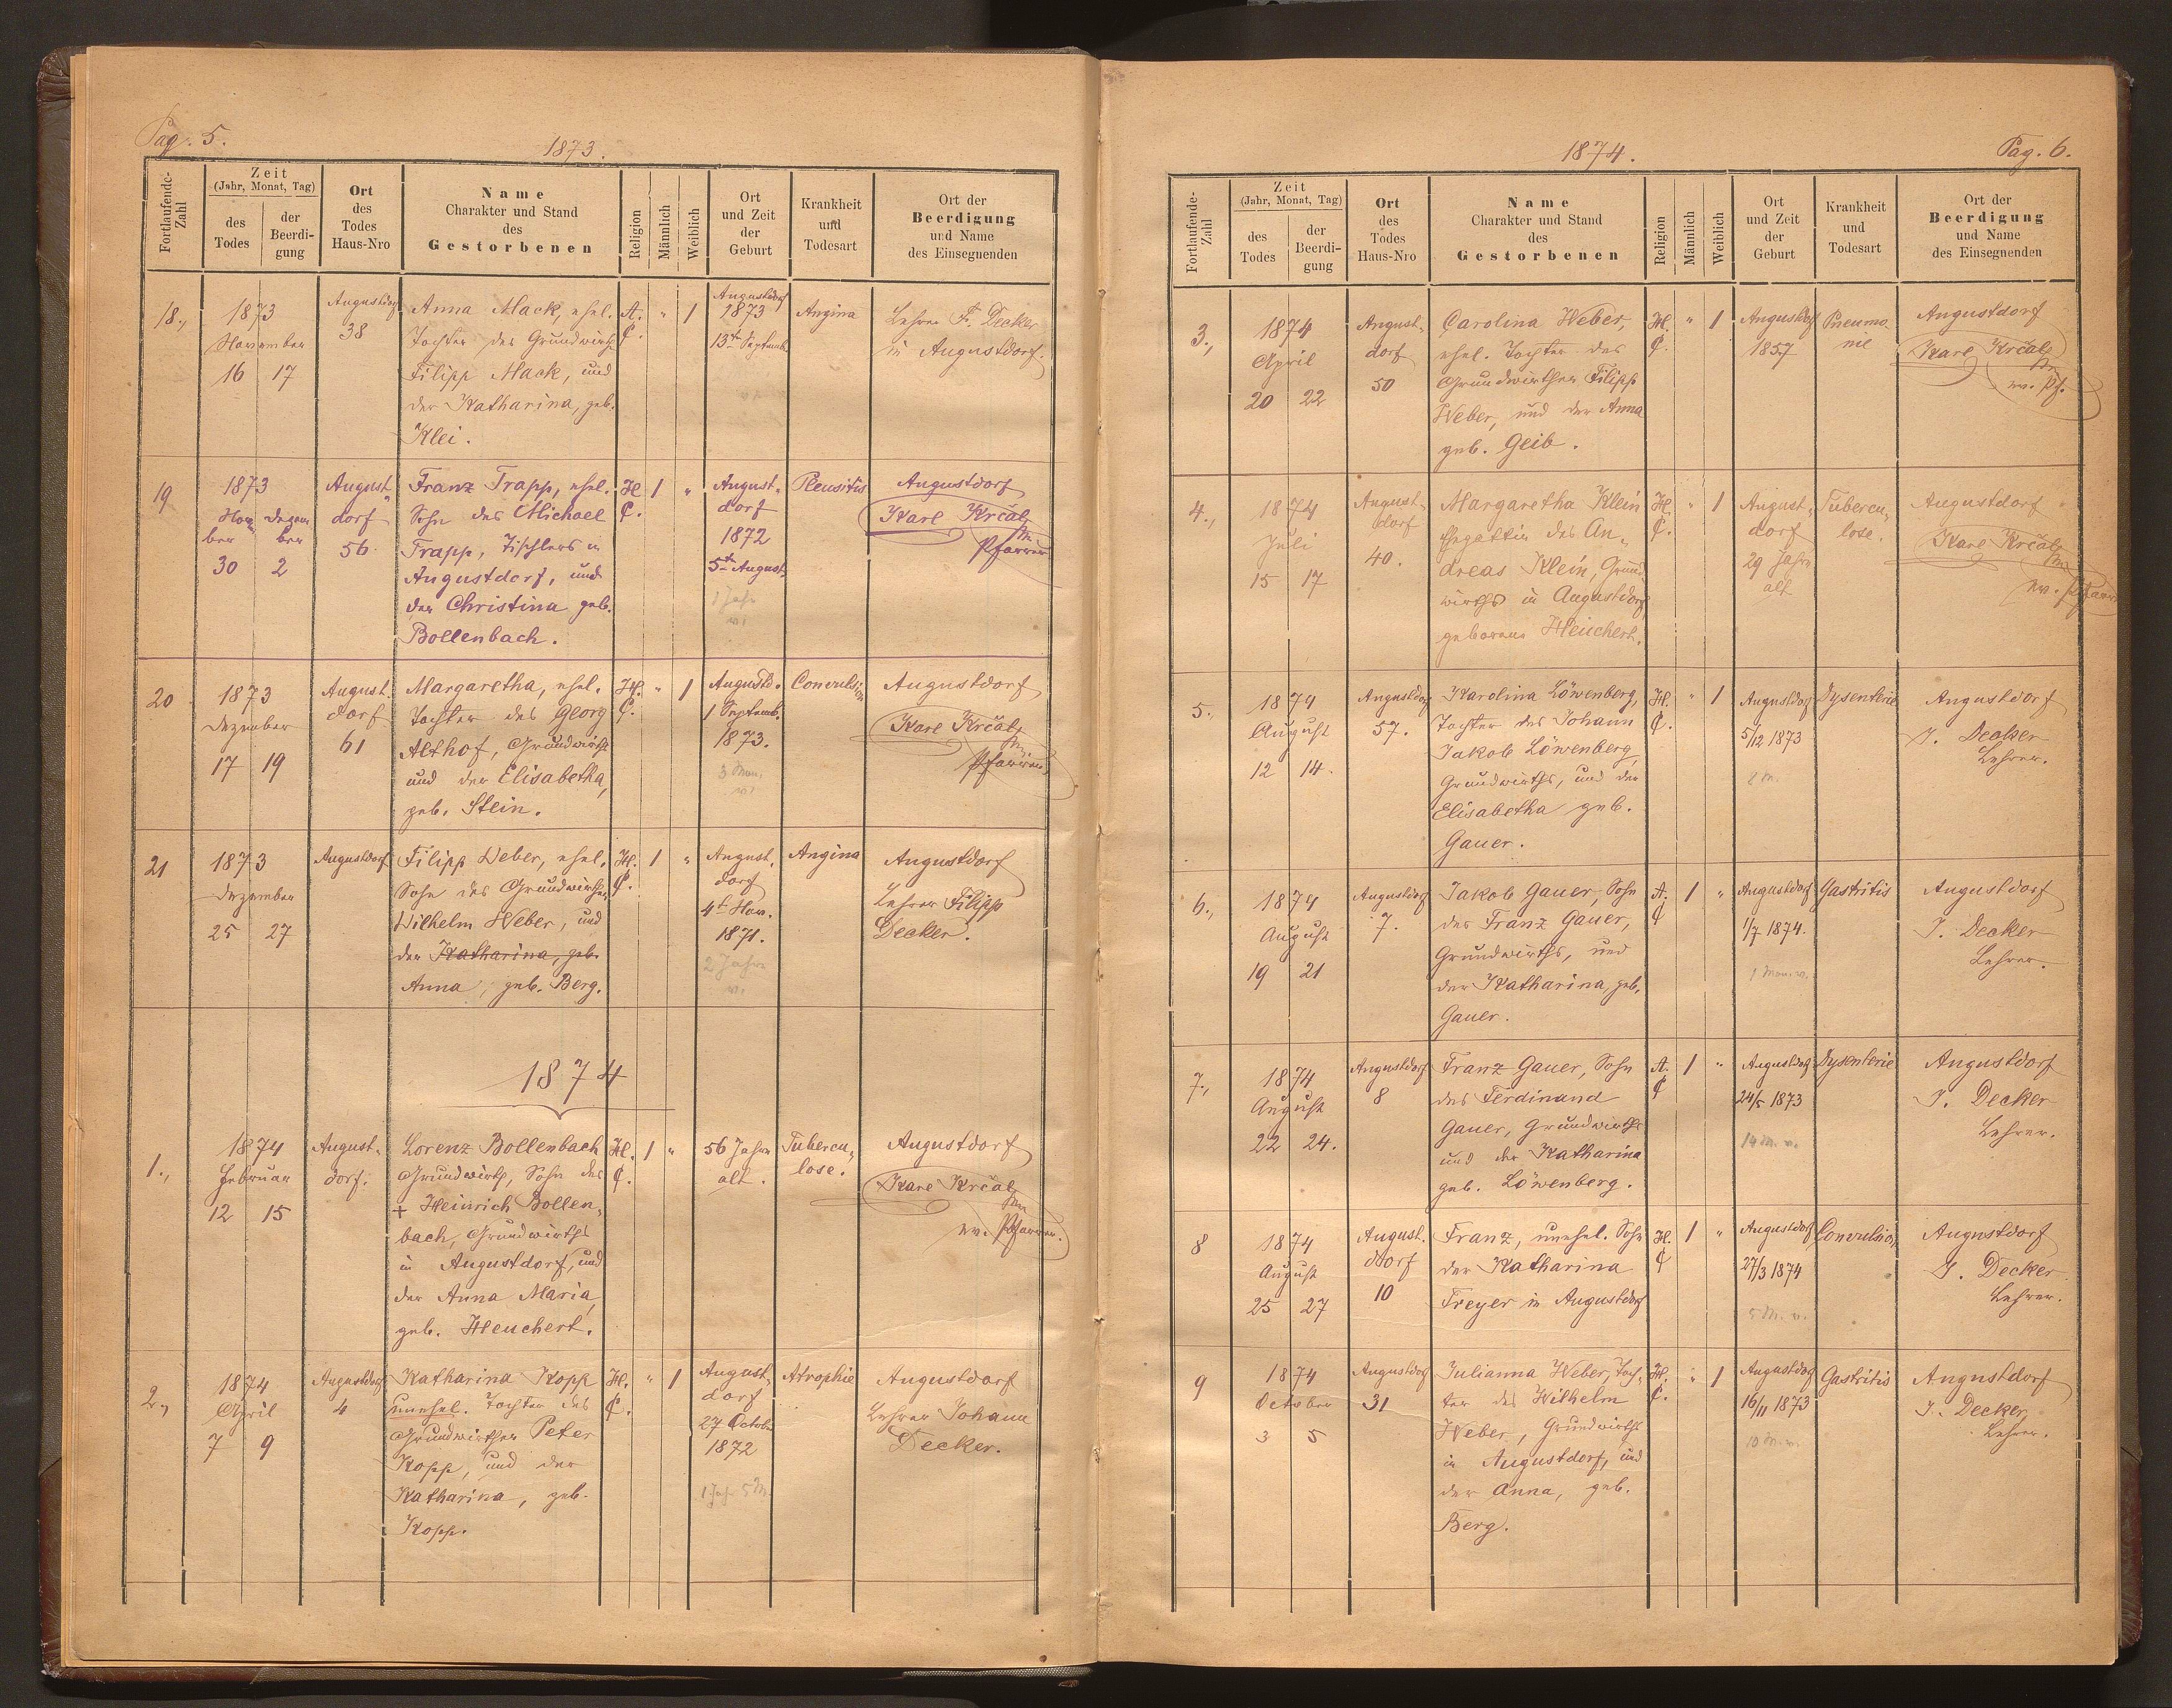 Pag. 5.
1873.
Fortlaufende Zahl
Zeit
(Jahr, Monat, Tag)
des Todes
der Beerdi-
gung
Ort
des
Todes
Haus-Nro
Name
Charakter und Stand
des
Gestorbenen
Religion
Männlich
Weiblich
Ort
und Zeit
der
Geburt
Krankheit
und
Todesart
Ort der
Beerdigung
und Name
des Einsegnenden
18.,
1873
November
16 17
Augustdorf
38
Anna Mack, ehel.
Tochter des Grundwirths
Filipp Mack, und
der Katharina, geb.
Klei.
A.
C.
" 1
Augustdorf
1873
13ten Septemb.
Angina
Lehrer F. Decker
in Augustdorf.
19
1873
Novem
ber
Dezem
ber
30 2
August„
dorf
56
Franz Trapp, ehel.
Sohn des Michael
Trapp, Tischlers in
Augustdorf, und
der Christina geb.
Bollenbach.
H.
C.
1 "
August„
dorf
1872
5ten August
1 Jahr
Pleusitis
Augustdorf
Karl Krčal
Pfarrer
20
1873
Dezember
17 19
August.
dorf
61
Margaretha, ehel.
Tochter des Georg
Althof, Grundwirths
und der Elisabetha,
geb. Stein.
H.
C.
" 1
Augustd.
1 Septemb.
1873.
3 Mon.
Convulsion
Augustdorf
Karl Krčal
Pfarrer
21
1873
Dezember
25 27
Augustdorf
Filipp Weber, ehel.
Sohn des Grundwirthes
Wilhelm Weber, und
der Katharina, geb.
Anna, geb. Berg.
H.
C.
1 "
August„
dorf
4t Nov.
1871.
2 Jahre
Angina
Augustdorf
Lehrer Filipp
Decker.
1874
1.,
1874
Februar
12 15
August„
dorf.
Lorenz Bollenbach
Grundwirth, Sohn des
+ Heinrich Bollen„
bach, Grundwirths
in Augustdorf, und
der Anna Maria,
geb. Heuchert.
H.
C.
1 "
56 Jahre
alt.
Tubercu„
lose.
Augustdorf
Karl Krčal
ev. Pfarrer.
2.,
1874
April
7 9
Augustdorf
4
Katharina Kopp
unehel. Tochter des
Grundwirthen Peter
Kopp, und der
Katharina, geb.
Kopp.
H.
C.
" 1
August„
dorf
27 October
1872
1 Jahr 5 M.
Atrophie
Augustdorf
Lehrer Johann
Decker.
1874.
Pag. 6.
Fortlaufende-
Zahl
Zeit
(Jahr, Monat, Tag)
des
Todes
der
Beerdi-
gung
Ort
des
Todes
Haus-Nro
Name
Charakter und Stand
des
Gestorbenen
Religion
Männlich
Weiblich
Ort
und Zeit
der
Geburt
Krankheit
und
Todesart
Ort der
Beerdigung
und Name
des Einsegnenden
3.,
1874
April
20 22
August„
dorf
50
Carolina Weber,
ehel. Tochter des
Grundwirthen Filipp
Weber, und der Anna
geb. Geib.
H.
C.
" 1
Augustdorf
1857
Pneumo
nie
Augustdorf
Karl Krčal
ev. Pf.
4.,
1874
Juli
15 17
August„
dorf
40.
Margaretha Klein
Ehegattin des An„
dreas Klein, Grund
wirths in Augustdorf,
geborene Heuchert.
H.
C.
" 1
August„
dorf
29 Jahre
alt
Tubercu„
lose.
Augustdorf
Karl Krčal
ev. Pfarrer
5.
1874
August
12 14.
Augustdorf
57.
Karolina Löwenberg,
Tochter des Johann
Jakob Löwenberg,
Grundwirths, und der
Elisabetha geb.
Gauer.
H.
C.
" 1
Augustdorf
5/12 1873
8 M.
Dysenterie
Augustdorf
J. Decker
Lehrer.
6.,
1874
August
19 21
Augustdorf
7.
Jakob Gauer, Sohn
des Franz Gauer,
Grundwirths, und
der Katharina, geb.
Gauer.
A.
C
1 "
Augustdorf
1/7 1874.
1 Mon. v.
Gastritis
Augustdorf
J. Decker
Lehrer.
7.,
1874
August
22 24.
Augustdorf
8
Franz Gauer, Sohn
des Ferdinand
Gauer, Grundwirths
und der Katharina
geb. Löwenberg.
A.
C
1 "
Augustdorf
24/5 1873
14 M. v.
Dysenterie
Augustdorf
J. Decker
Lehrer.
8
1874
August
25 27
August.
dorf
10
Franz, unehel. Sohn
der Katharina
Freyer in Augustdorf
H.
C
1 "
Augustdorf
27/3 1874
5 M. v.
Convulsion
Augustdorf
J. Decker
Lehrer.
9
1874
October
3 5
Augustdorf
31
Julianna Weber, Toch„
ter des Wilhelm
Weber, Grundwirths
in Augustdorf, und
der Anna, geb.
Berg.
H.
C.
" 1
Augustdorf
16/11 1873
10 M. v.
Gastritis
Augustdorf
J. Decker
Lehrer.